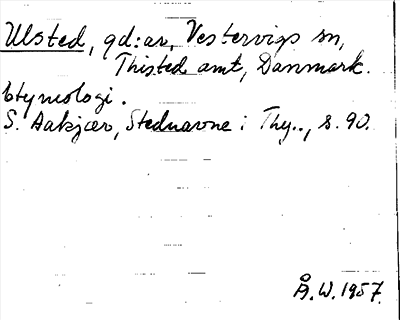 Ulsted, gd:ar, Vestervigs sn,
Thisted amt, Danmark.
Etymologi.
S. Aakjær, Stednavne i Thy.., s. 90.
Å. W. 1957.